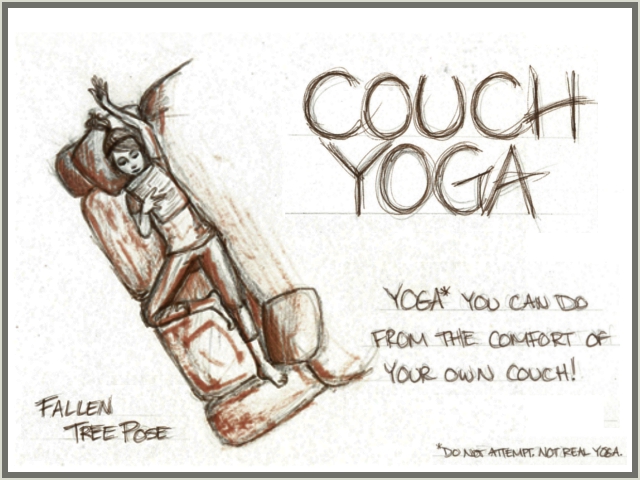 COUCH
YOGA
YOGA* YOU CAN DO
FROM THE COMFORT OF
YOUR OWN COUCH!
FALLEN
TREE POSE
*DO NOT ATTEMPT. NOT REAL YOGA.